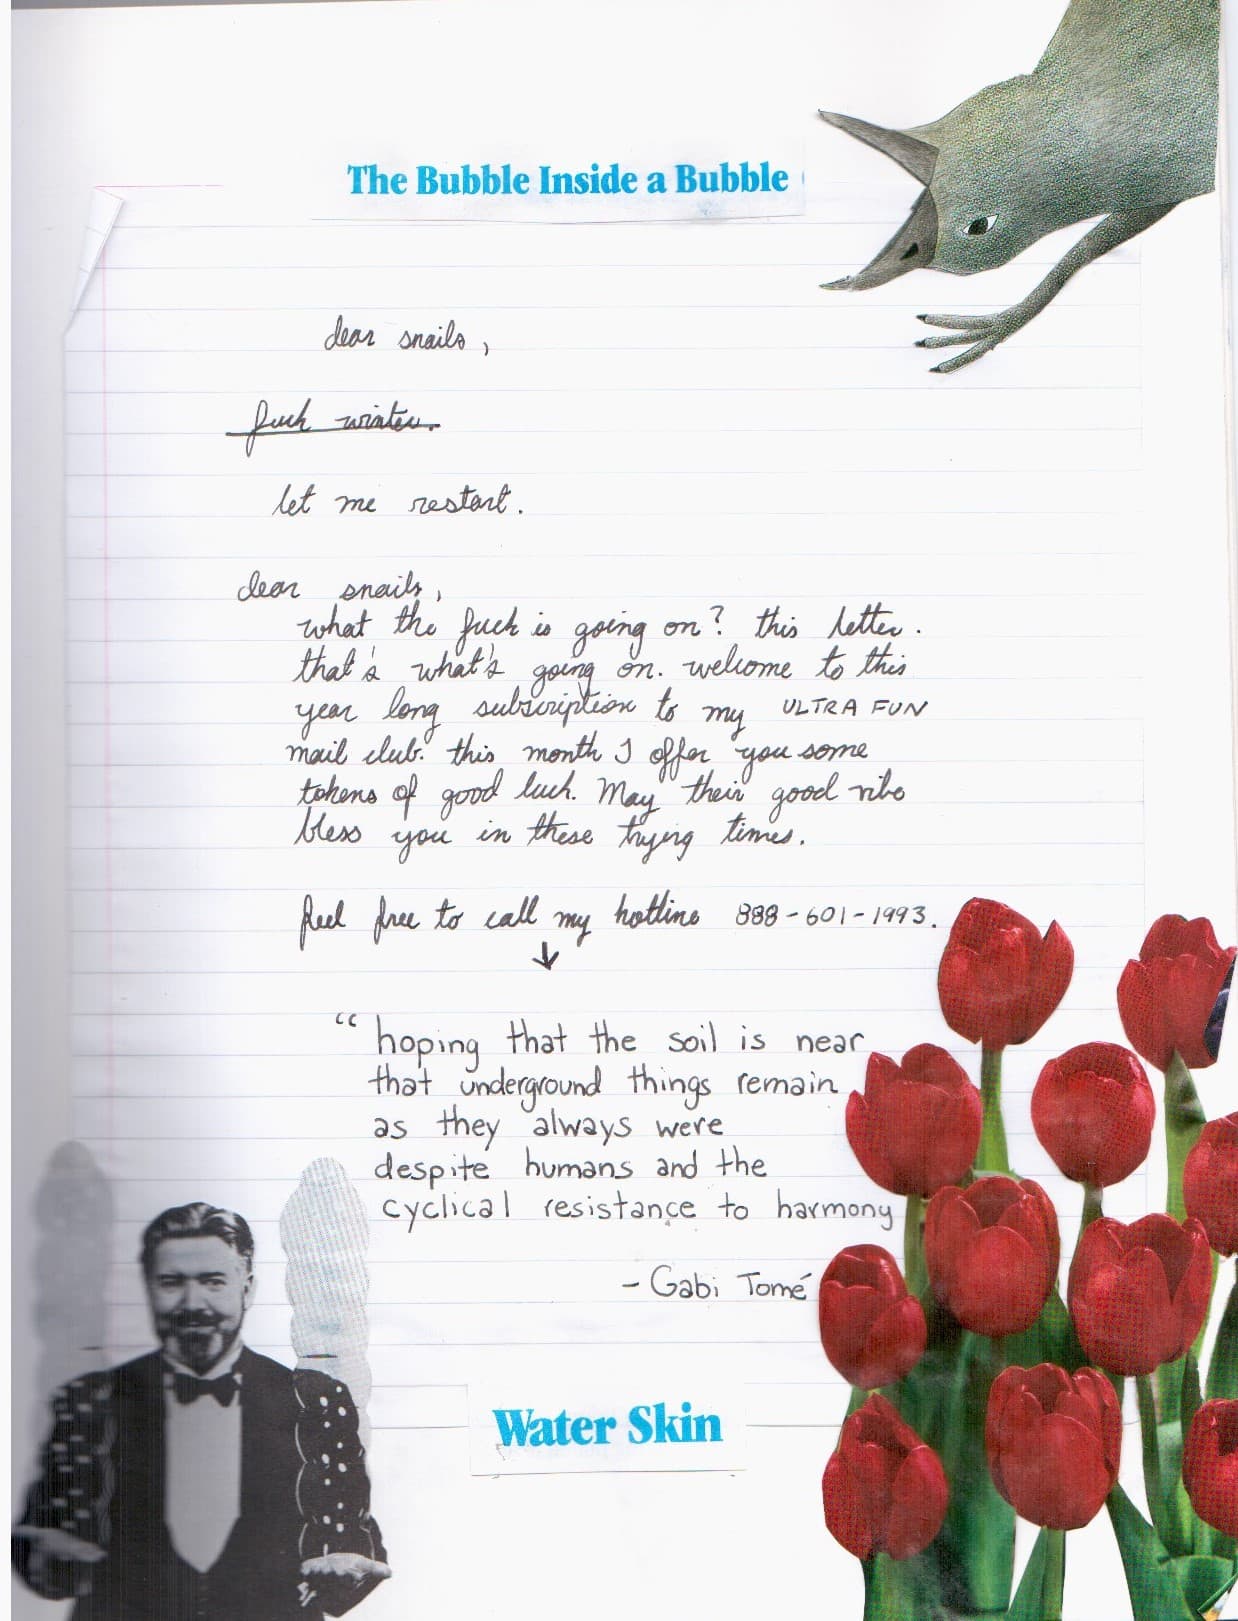 The Bubble Inside a Bubble
dear snails,
fuck winter.
let me restart.
dear snails,
what the fuck is going on? this letter.
that's what's going on. welcome to this
year long subscription to my ULTRA FUN
mail club. this month I offer you some
tokens of good luck. May their good vibe
bless you in these trying times.
feel free to call my hotline 888-601-1993.
"hoping that the soil is near
that underground things remain
as they always were
despite humans and the
cyclical resistance to harmony
- Gabi Tomé
Water Skin